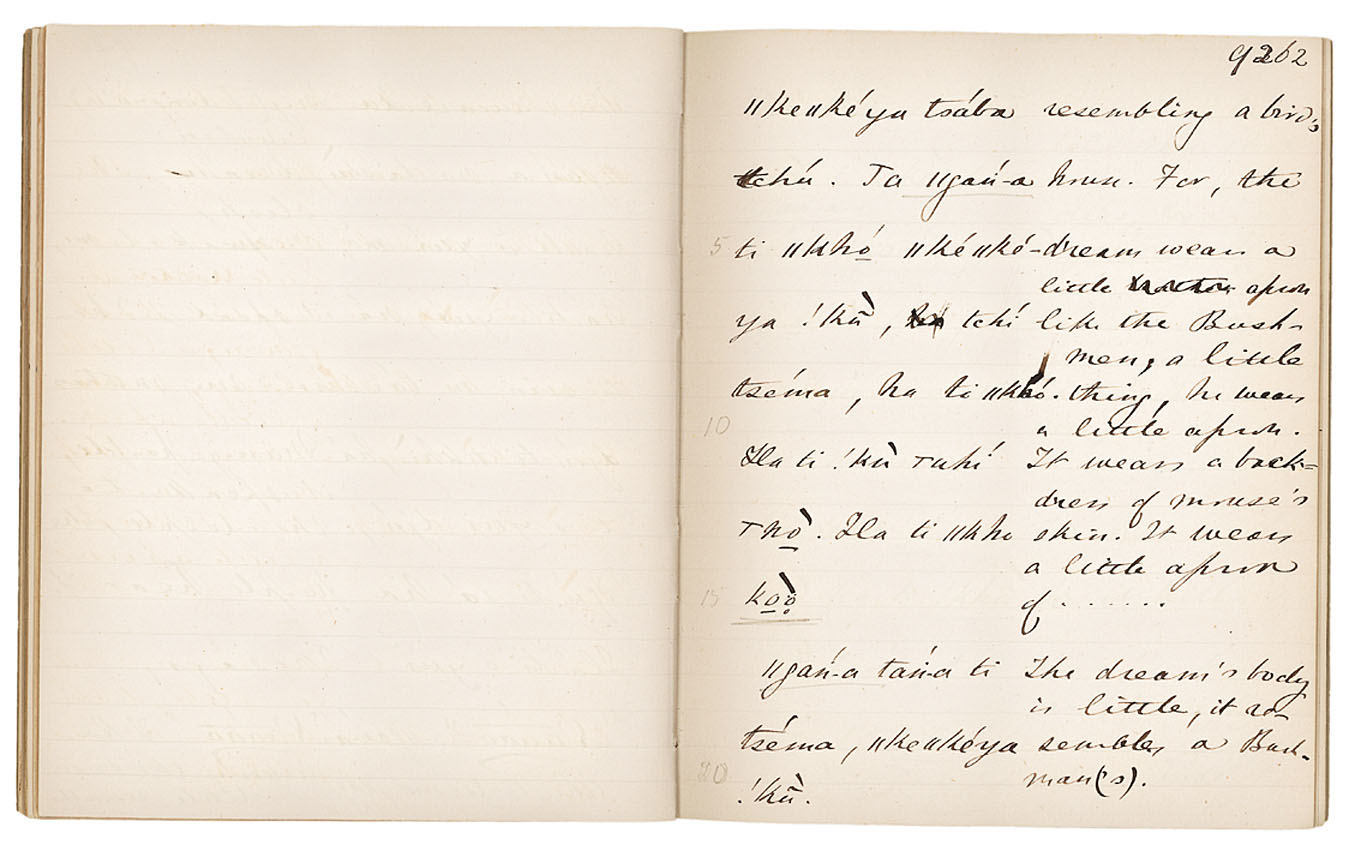 9262
"ke"kéya tsába resembling a bird's
tchú. Ta "gań-a house. For, the
5 ti "khó "ké"ké-dream wears a
little apron
ya !kù̄, tchí like the Bush-
men, a little
tséma, ha ti "khó. thing, he wears
10 a little apron.
Ha ti !kù ruhí It wears a back=
dress of mouse's
rnò. Ha ti "kho skin. It wears
a little apron
15 koò of . . . . . . .
"gań-a táń-a ti The dream's body
is little, it re-
tséma, "ke"kéya sembles a Bush-
20 man(s).
!kù̄.